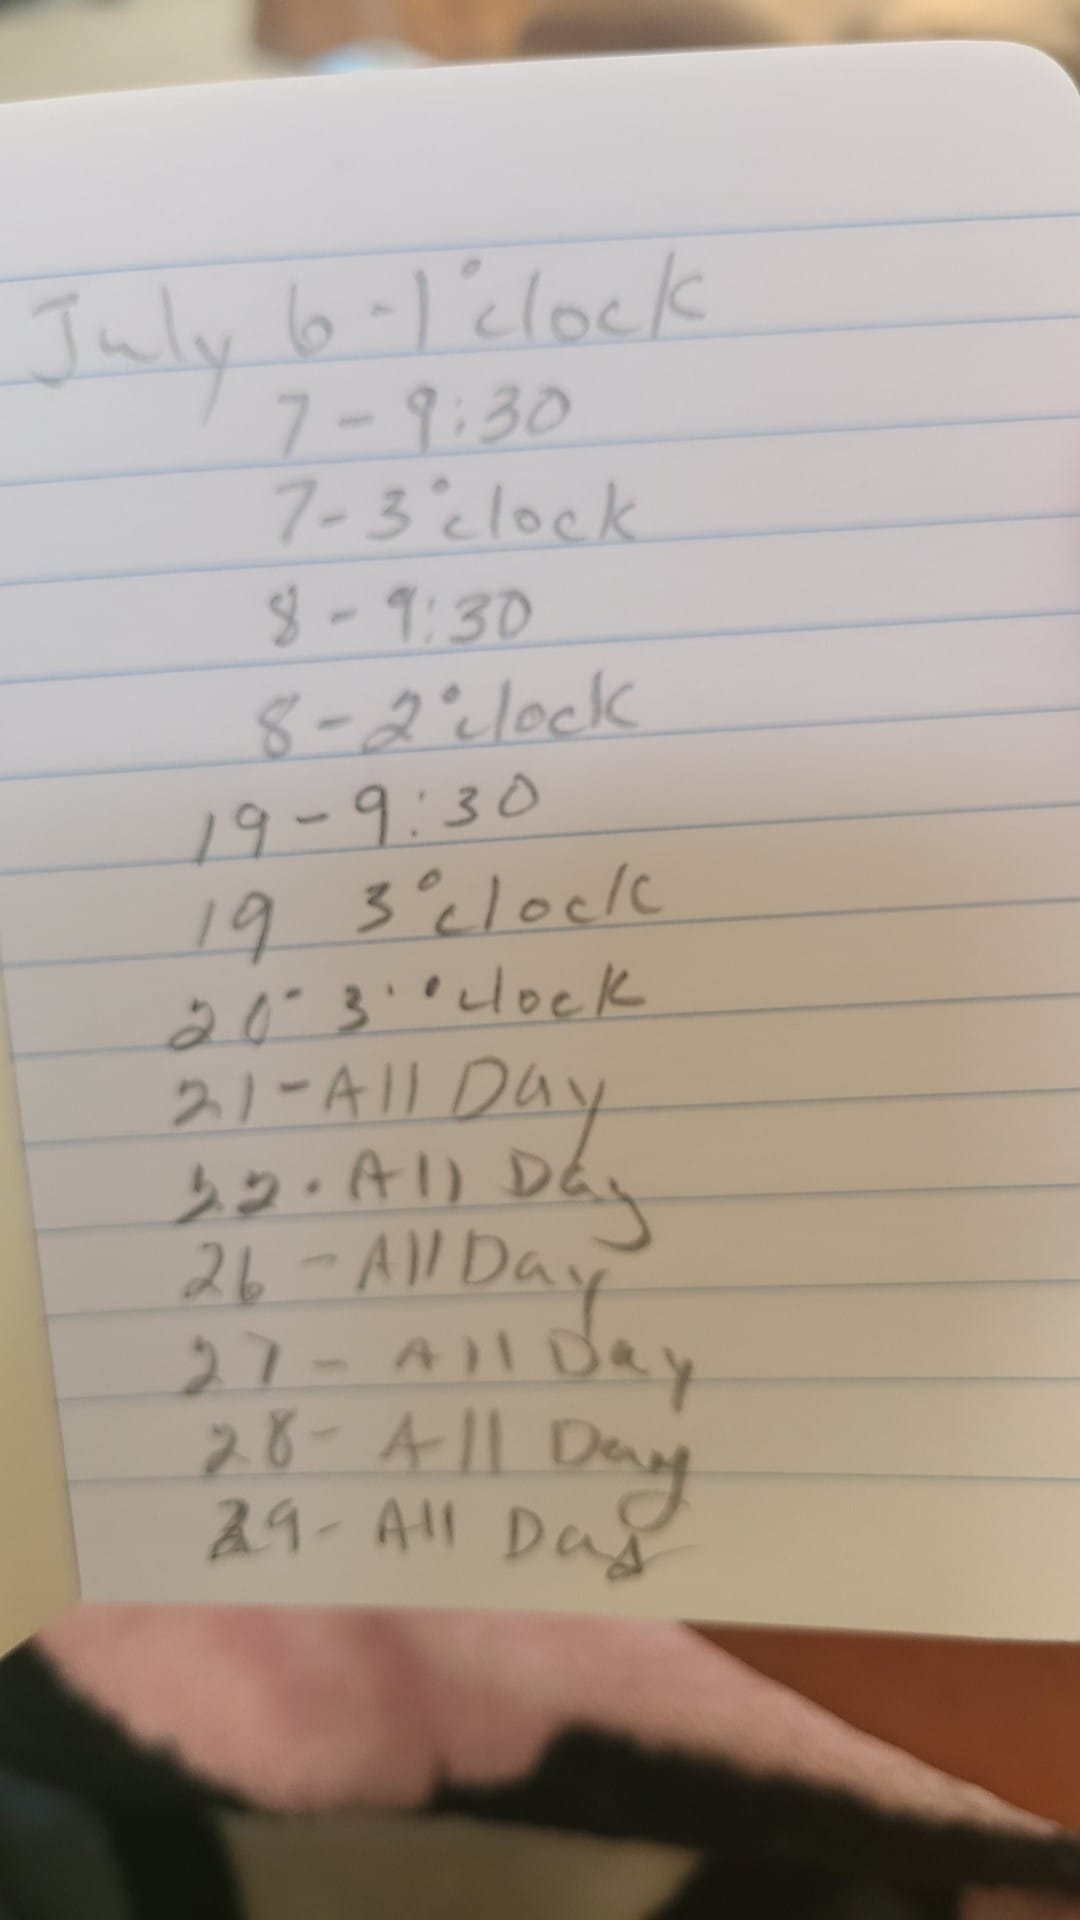 July 6-1 o'clock
7-9:30
7-3 o'clock
8-9:30
8-2 o'clock
19-9:30
19 3 o'clock
20-3 o'clock
21-All Day
22. All Day
26-All Day
27-All Day
28-All Day
29-All Day